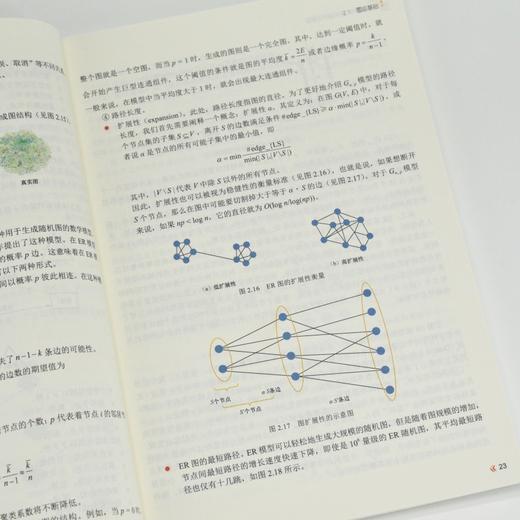 误、取消”等不同关
成图结构（见图2.15）
真实图
种用于生成随机图的数学模型，
提出了这种模型。在ER模
的概率p边。这意味着在ER
以下两种形式。
间以概率 p 彼此相连。在这种
失了 n−1−k 条边的可能性。
的边数的期望值为
节点的个数；p 代表着节点 i 的邻居
k̄/(n−1) ≈ k̄/n
聚类系数将不断降低。
图的结构。例如，当 p=0 时，
图论基础
整个图就是一个空图，而当 p = 1 时，生成的图则是一个完全图。其中，达到一定阈值时，就
会开始产生巨型连通组件，这个阈值的条件就是图的平均度 k̄ = 2E/n 或者边缘概率 p = k̄/(n−1)。
一般来说，在模型中当平均度大于 1 时，就会出现最大连通组件。
④ 路径长度。
● 扩展性（expansion）。此处，路径长度指图的直径。为了更好地介绍 Gₙ,ₚ 模型的路径
长度，我们首先需要阐释一个概念：扩展性 α，其定义为：在图 G(V, E) 中，对于每
个节点集的子集 S⊆V，离开 S 的边数满足条件 #edge_{LS} ⩾ α · min(|S|,|V\S|)，或
者说 α 是节点的所有可能子集中的最小值，即
α = min #edge_{LS} / min(|S|,|V\S|)
其中，|V\S| 代表 V 中除 S 以外的所有节点。
因此，扩展性也可以被视为稳健性的衡量标准（见图 2.16），也就是说，如果想断开
S 个节点，那么在图中可能要切割掉大于等于 α · S 的边（见图 2.17）。对于 Gₙ,ₚ 模型
来说，如果 np < log n，它的直径就为 O(log n/log(np))。
（a）低扩展性
（b）高扩展性
图 2.16 ER 图的扩展性衡量
S个节点
α·S条边
S'个节点
α·S'条边
图 2.17 图扩展性的示意图
● ER 图的最短路径。ER 模型可以轻松地生成大规模的随机图，但是随着图规模的增加，
节点间最短路径的增长速度快速下降，即使是 10⁶ 量级的 ER 随机图，其平均最短路
径也仅有十几跳，如图 2.18 所示。
23